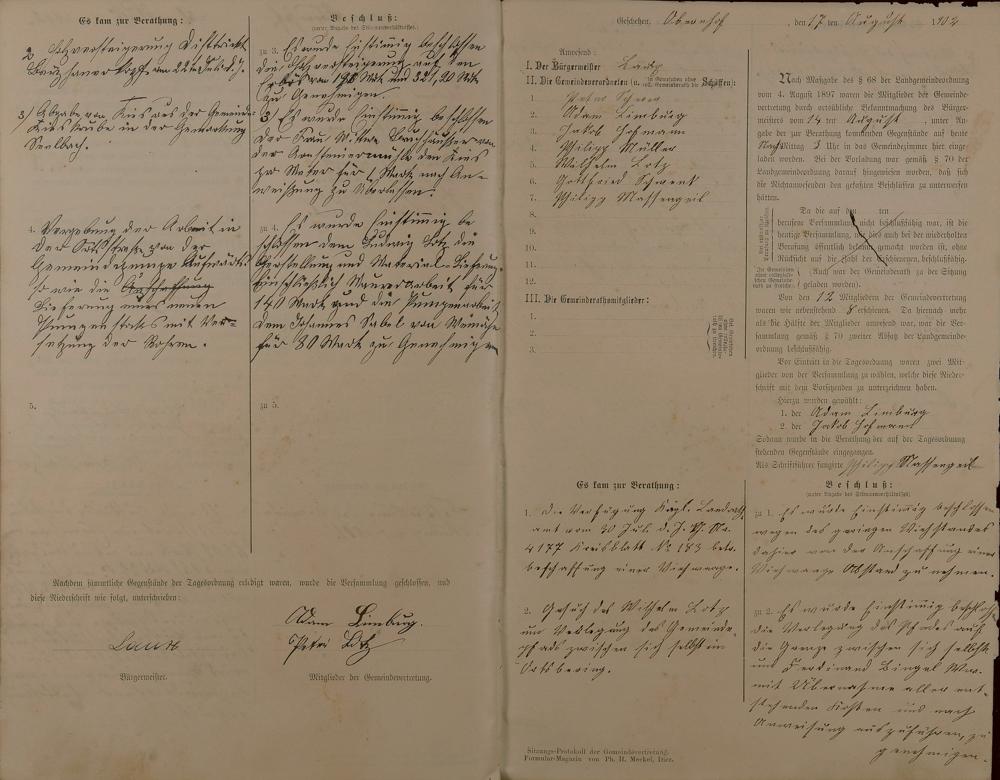 Es kam zur Berathung:
2 Holzversteigerung Distrikt
vom 22ten Juli d. J.
3) Abgabe von Kies aus der Gemeinde
Kiesgrube in der Gemarkung
Seelbach.
4. Vergebung der Arbeit in
der Ortsstraße von der
Gemeindepumpe Aufwärts
so wie die Anschaffung
Lieferung eines neuen
Pumpenstocks mit Ver-
setzung der Rohren.
5.
Beschluß:
(unter Angabe des Stimmenverhältnisses).
zu 3. Es wurde Einstimig beschlossen
die Holzversteigerung auf den
Erlös von Mark und Mark
zu Genehmigen.
3) Es wurde Einstimig beschlossen
der Frau Witwe von
der den Kies
pro Meter für 1 Mark nach An-
weißung zu Überlossen.
zu 4. Es wurde Einstimmig be
schlossen dem Ludwig Lotz die
Herstellung und Material-Lieferung
Einschließlich Maurerarbeit für
Mark und die Pumpenarbeit
dem Johannes Sabel von
für 80 Mark zu Genehmigen
zu 5.
Nachdem sämmtliche Gegenstände der Tagesordnung erledigt waren, wurde die Versammlung geschlossen, und
diese Niederschrift wie folgt, unterschrieben:
Adam Limburg.
Peter Lotz
Bürgermeister.
Mitglieder der Gemeindevertretung.
Geschehen, Obernhof, den 17 ten August 1902
Anwesend:
I. Der Bürgermeister
II. Die Gemeindeverordneten (u. in Gemeinden ohne coll. Gemeinderath die Schöffen):
1. Peter
2. Adam Limburg
3. Jakob Hofmann
4. Philipp Müller
5. Wilhelm Lotz
6. Gottfried Schwenk
7. Philipp Massengeil
8.
9.
10.
11.
12.
III. Die Gemeinderathsmitglieder:
1.
2.
3.
Nach Maßgabe des § 68 der Landgemeindeordnung
vom 4. August 1897 waren die Mitglieder der Gemeinde-
vertretung durch ortsübliche Bekanntmachung des Bürger-
meisters vom 14 ten August, unter An-
gabe der zur Berathung kommenden Gegenstände auf heute
Nachmittag 3 Uhr in das Gemeindezimmer hier einge-
laden worden. Bei der Vorladung war gemäß § 70 der
Landgemeindeordnung darauf hingewiesen worden, daß sich
die Nichtanwesenden den gefaßten Beschlüssen zu unterwerfen
hätten.
Da die auf den ten
berufene Versammlung nicht beschlußfähig war, ist die
heutige Versammlung, wie dies auch bei der wiederholten
Berufung öffentlich bekannt gemacht worden ist, ohne
Rücksicht auf die Zahl der Erschienenen, beschlußfähig.
(Auch war der Gemeinderath zu der Sitzung
geladen worden).
Von den 12 Mitgliedern der Gemeindevertretung
waren wie nebenstehend 8 erschienen. Da hiernach mehr
als die Hälfte der Mitglieder anwesend war, war die Ver-
sammlung gemäß § 70 zweiter Absatz der Landgemeinde-
ordnung beschlußfähig.
Vor Eintritt in die Tagesordnung waren zwei Mit-
glieder von der Versammlung zu wählen, welche diese Nieder-
schrift mit dem Vorsitzenden zu unterzeichnen haben.
Hierzu wurden gewählt:
1. der Adam Limburg
2. der Jakob Hofmann
Sodann wurde in die Berathung der auf der Tagesordnung
stehenden Gegenstände eingegangen.
Als Schriftführer fungirte Philipp Massengeil
Es kam zur Berathung:
1. die Verfügung Kögl. Landraths
amt vom 30 Juli d. J.
4177 Kreisblatt No 183 betr.
beschaffung einer Viehwaage.
2. Gesuch des Wilhelm Lotz
um Verlegung des Gemeinde-
pfads zwischen sich selbst im
Ortsbering.
Beschluß:
(unter Angabe des Stimmenverhältnisses)
zu 1. Es wurde Einstimig beschlossen
wegen des geringen Viehstandes
dahier von der Anschaffung einer
Viehwaage Abstand zu nehmen.
zu 2. Es wurde Einstimig beschlossen
die Verlegung des Pfades auf
die Grenze zwischen sich selbst
und Ferdinand Bingel Ww.
mit Übernahme aller ent-
stehenden Kosten und nach
Anweisung auszuführen, zu
genehmigen.
Sitzungs-Protokoll der Gemeindevertretung.
Formular-Magazin von Ph. H. Meckel, Diez.